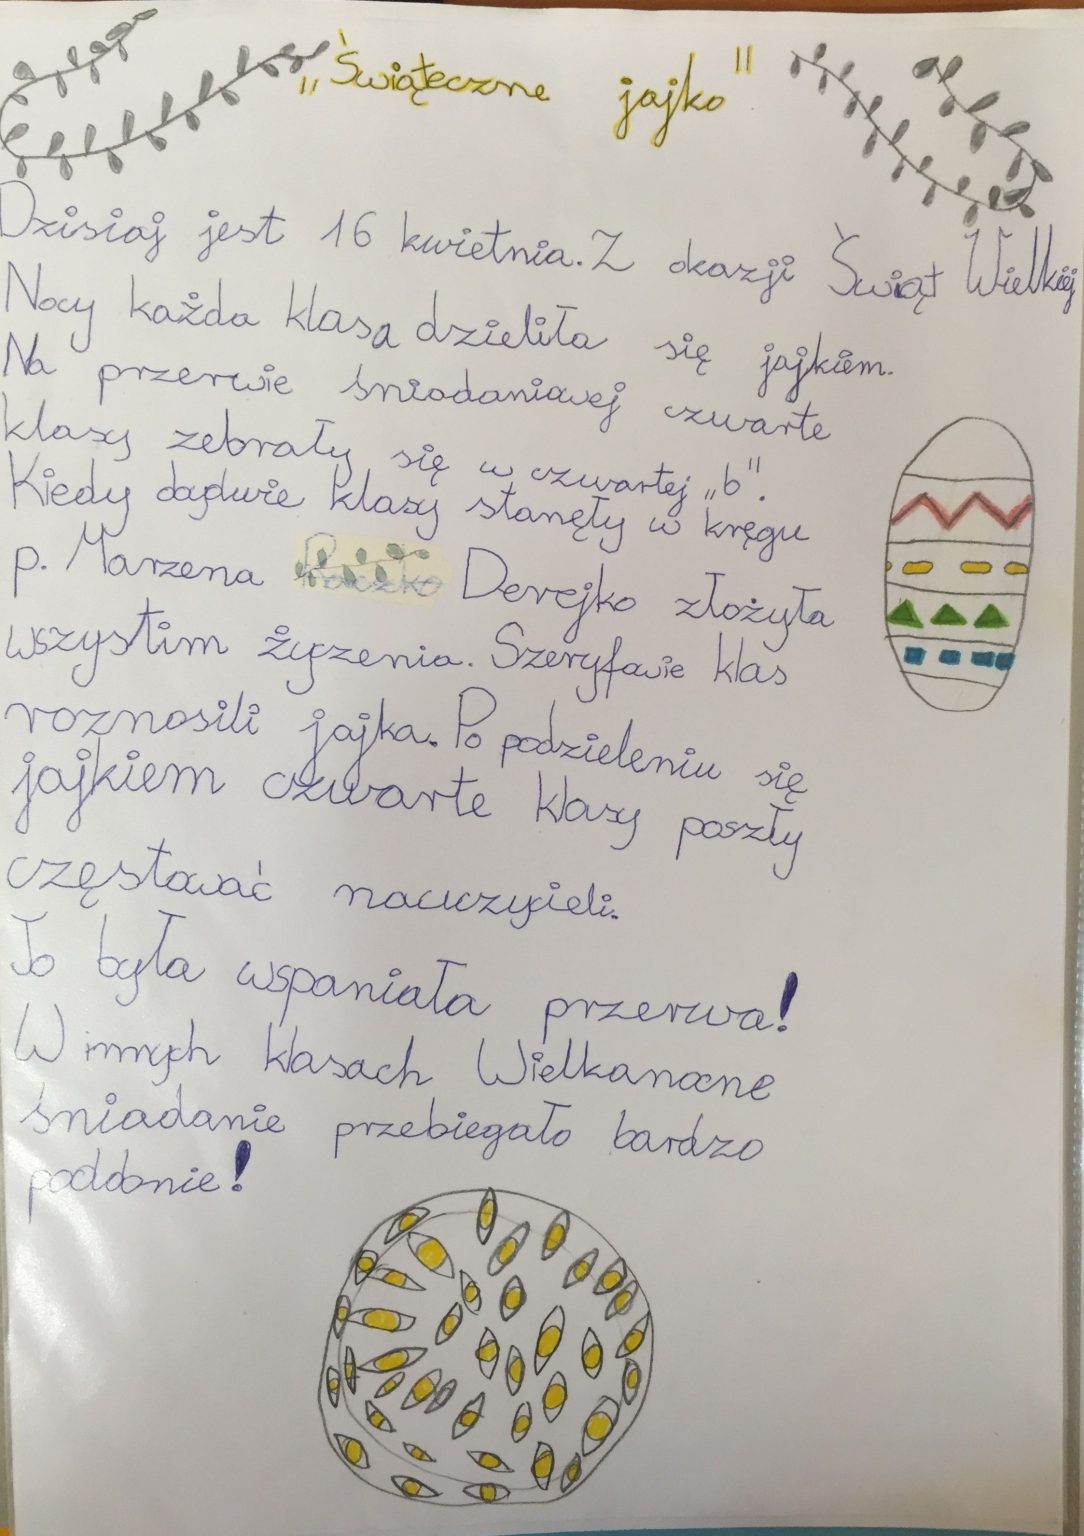 „Świąteczne jajko"
Dzisiaj jest 16 kwietnia. Z okazji Świąt Wielkiej
Nocy każda klasa dzieliła się jajkiem.
Na przerwie śniadaniowej czwarte
klasy zebrały się w czwartej „b".
Kiedy dwie klasy stanęły w kręgu
p. Marzena Derejko złożyła
wszystim życzenia. Szeryfowie klas
roznosili jajka. Po podzieleniu się
jajkiem czwarte klasy poszły
częstować nauczycieli.
To była wspaniała przerwa!
W innych klasach Wielkanocne
śniadanie przebiegało bardzo
poddobnie!